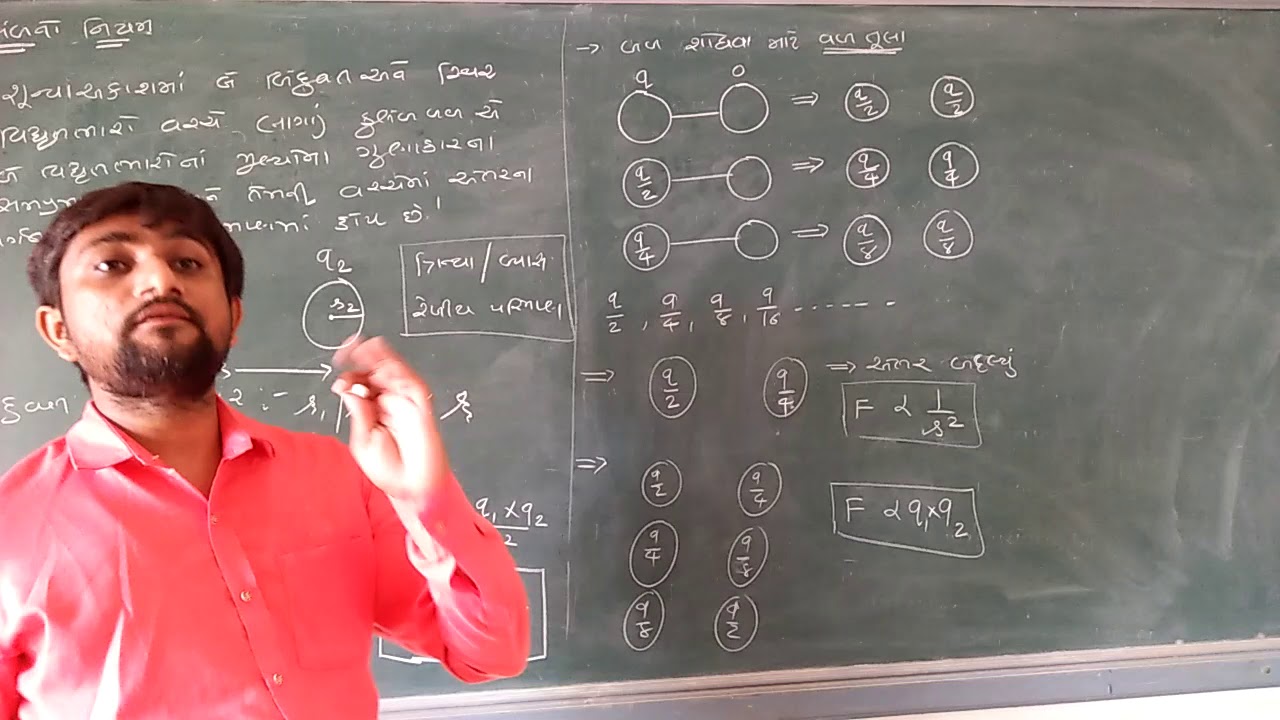 નિયમ
શૂન્યાવકાશમાં બે બિંદુવત અને સ્થિર
વિદ્યુતભારો વચ્ચે લાગતું કુલંબ બળ એ
બે વિદ્યુતભારોનાં મુલ્યોના ગુણાકારના
તેમની વચ્ચેના અંતરના
હોય છે.
q₂
r₂
ત્રિજ્યા / વ્યાસ
રેખીય પરિમાણ
r₁
q₁ × q₂
→ બળ શોધવા માટે વળ તુલા
q 0 ⇒ q/2 q/2
q/2 ⇒ q/4 q/4
q/4 ⇒ q/8 q/8
q/2 , q/4 , q/8 , q/16 -------
⇒ q/2 q/4 ⇒ અંતર બદલ્યું
F ∝ 1/r²
⇒ q/2 q/4
F ∝ q₁ × q₂
q/4 q/8
q/8 q/2